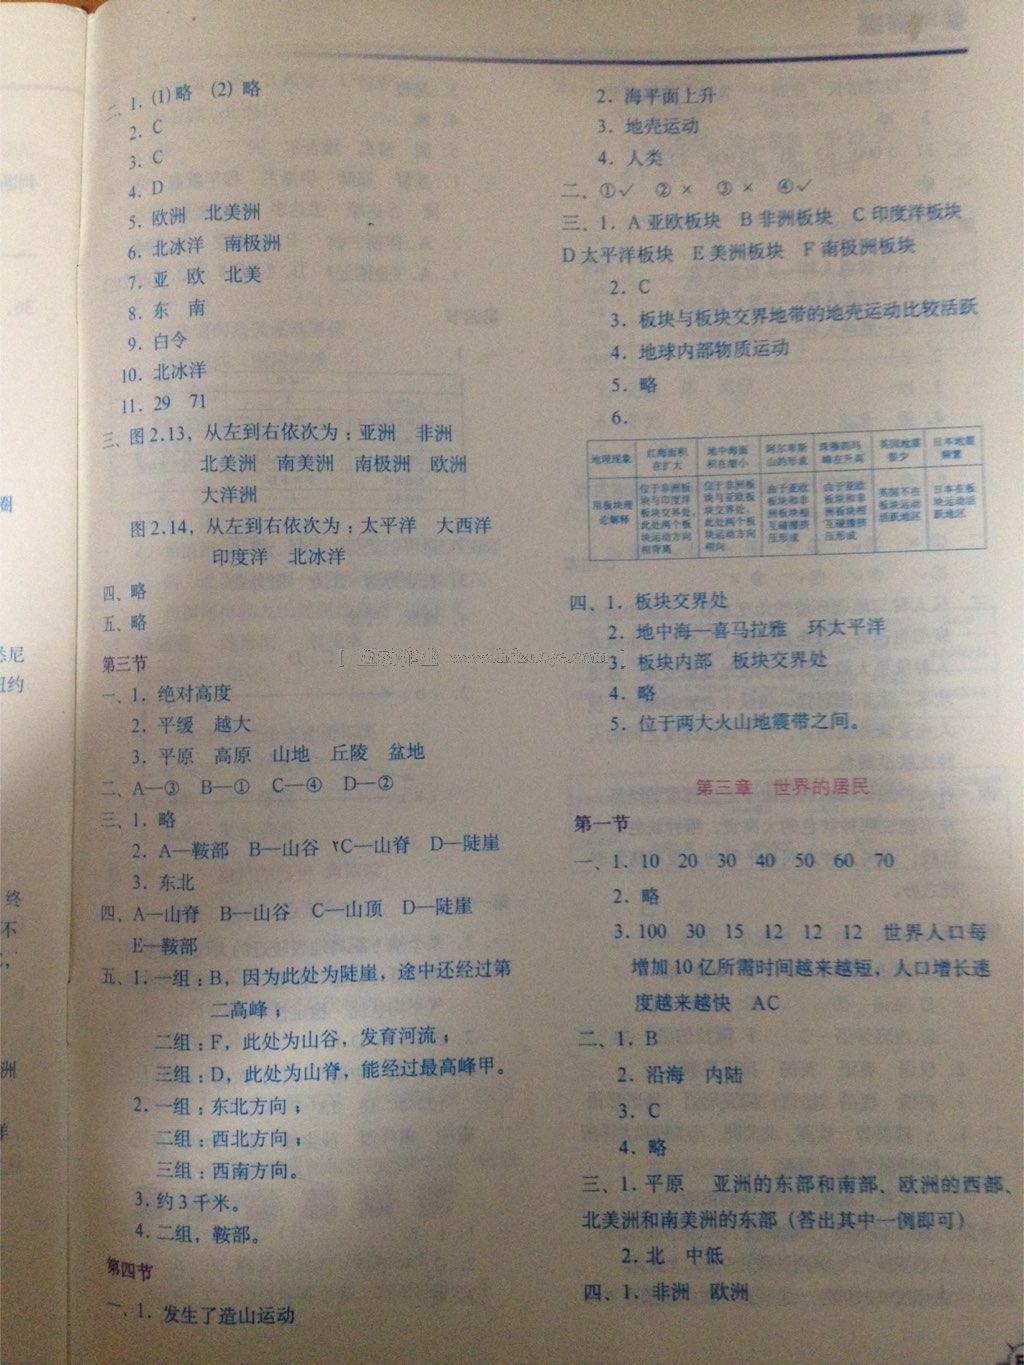 二、1. (1)略 (2)略
2. C
3. C
4. D
5. 欧洲 北美洲
6. 北冰洋 南极洲
7. 亚 欧 北美
8. 东 南
9. 白令
10. 北冰洋
11. 29 71
三、图2.13，从左到右依次为：亚洲 非洲
北美洲 南美洲 南极洲 欧洲
大洋洲
图2.14，从左到右依次为：太平洋 大西洋
印度洋 北冰洋
四、略
五、略
第三节
一、1. 绝对高度
2. 平缓 越大
3. 平原 高原 山地 丘陵 盆地
二、A—③ B—① C—④ D—②
三、1. 略
2. A—鞍部 B—山谷 C—山脊 D—陡崖
3. 东北
四、A—山脊 B—山谷 C—山顶 D—陡崖
E—鞍部
五、1. 一组：B，因为此处为陡崖，途中还经过第
二高峰；
二组：F，此处为山谷，发育河流；
三组：D，此处为山脊，能经过最高峰甲。
2. 一组：东北方向；
二组：西北方向；
三组：西南方向。
3. 约3千米。
4. 二组，鞍部。
第四节
一、1. 发生了造山运动
2. 海平面上升
3. 地壳运动
4. 人类
二、①✓ ②× ③× ④✓
三、1. A亚欧板块 B非洲板块 C印度洋板块
D太平洋板块 E美洲板块 F南极洲板块
2. C
3. 板块与板块交界地带的地壳运动比较活跃
4. 地球内部物质运动
5. 略
6.
地理现象 红海面积在扩大 地中海面积在缩小 阿尔卑斯山的形成 珠穆朗玛峰在升高 英国地震很少 日本地震频繁
用板块理论解释 位于非洲板块与印度洋板块交界处，此处两个板块运动方向相背离 位于非洲板块与亚欧板块交界处，此处两个板块运动方向相向 由于亚欧板块和非洲板块相互碰撞挤压形成 由于亚欧板块和非洲板块相互碰撞挤压形成 英国不在板块运动活跃地区 日本在板块运动活跃地区
四、1. 板块交界处
2. 地中海—喜马拉雅 环太平洋
3. 板块内部 板块交界处
4. 略
5. 位于两大火山地震带之间。
第三章 世界的居民
第一节
一、1. 10 20 30 40 50 60 70
2. 略
3. 100 30 15 12 12 12 世界人口每
增加10亿所需时间越来越短，人口增长速
度越来越快 AC
二、1. B
2. 沿海 内陆
3. C
4. 略
三、1. 平原 亚洲的东部和南部、欧洲的西部、
北美洲和南美洲的东部（答出其中一例即可）
2. 北 中低
四、1. 非洲 欧洲